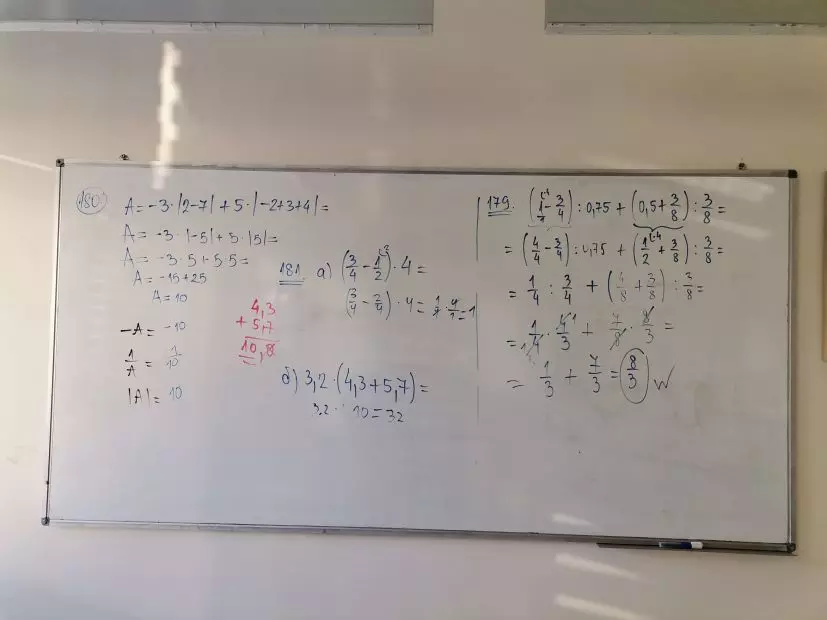 180
A = -3·|2-7| + 5·|-2+3+4| =
A = -3·|-5| + 5·|5| =
A = -3·5 + 5·5 =
A = -15+25
A = 10
-A = -10
1/A = 1/10
|A| = 10
4,3
+ 5,7
10,0
181. а) (3/4 - 1/2)·4 =
(3/4 - 2/4)·4 = 1/4·4/1 = 1
б) 3,2·(4,3+5,7) =
3,2· 10 = 32
179. (1/1 - 3/4) : 0,75 + (0,5 + 3/8) : 3/8 =
= (4/4 - 3/4) : 0,75 + (1/2 + 3/8) : 3/8 =
= 1/4 : 3/4 + (4/8 + 3/8) : 3/8 =
= 1/4 · 4/3 + 7/8 · 8/3 =
= 1/3 + 7/3 = 8/3